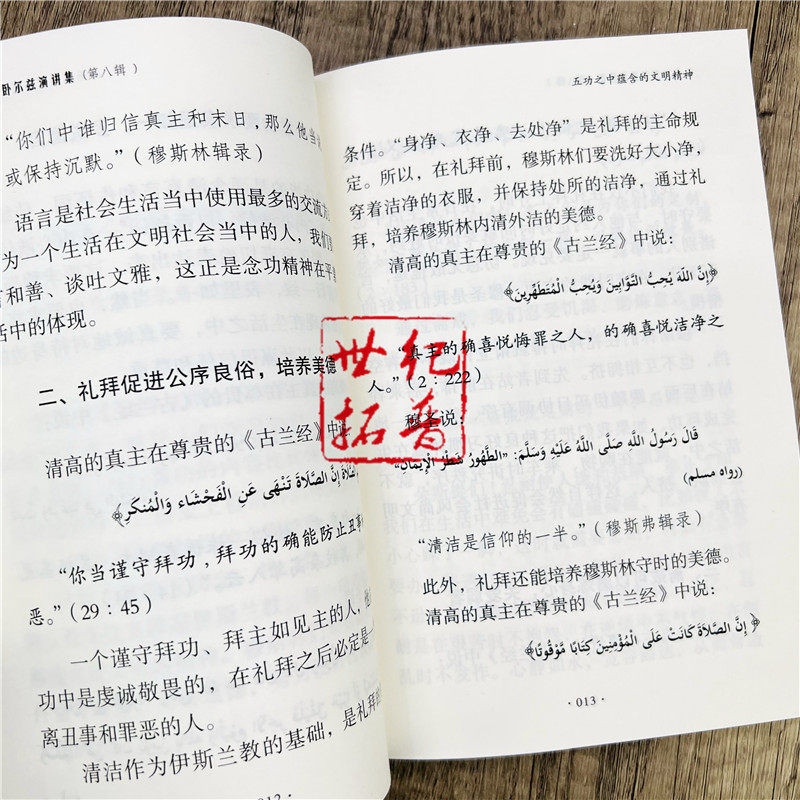 卧尔兹演讲集（第八辑）
“你们中谁归信真主和末日，那么他当
或保持沉默。”（穆斯林辑录）
语言是社会生活当中使用最多的交流
为一个生活在文明社会当中的人，我们
和善、谈吐文雅，这正是念功精神在平
活中的体现。
二、礼拜促进公序良俗，培养美德
清高的真主在尊贵的《古兰经》中说
إِنَّ الصَّلَاةَ تَنْهَى عَنِ الْفَحْشَاء وَالْمُنكَرِ﴾
“你当谨守拜功，拜功的确能防止丑事
恶。”（29：45）
一个谨守拜功、拜主如见主的人，他
功中是虔诚敬畏的，在礼拜之后必定是
离丑事和罪恶的人。
清洁作为伊斯兰教的基础，是礼拜的
012 ·
五功之中蕴含的文明精神
条件。“身净、衣净、去处净”是礼拜的主命规
定。所以，在礼拜前，穆斯林们要洗好大小净，
穿着洁净的衣服，并保持处所的洁净，通过礼
拜，培养穆斯林内清外洁的美德。
清高的真主在尊贵的《古兰经》中说：
﴿إِنَّ اللّهَ يُحِبُّ التَّوَّابِينَ وَيُحِبُّ الْمُتَطَهِّرِينَ﴾
“真主的确喜悦悔罪之人，的确喜悦洁净之
人。”（2：222）
穆圣说：
قَالَ رَسُولُ اللَّهِ صَلَّى اللَّهُ عَلَيْهِ وَسَلَّمَ: "الطُّهُورُ شَطْرُ الْإِيمَانِ"
(رواه مسلم)
“清洁是信仰的一半。”（穆斯弗辑录）
此外，礼拜还能培养穆斯林守时的美德。
清高的真主在尊贵的《古兰经》中说：
﴿ إِنَّ الصَّلَاةَ كَانَتْ عَلَى الْمُؤْمِنِينَ كِتَابًا مَّوْقُوتًا﴾
· 013 ·
世纪
拓普